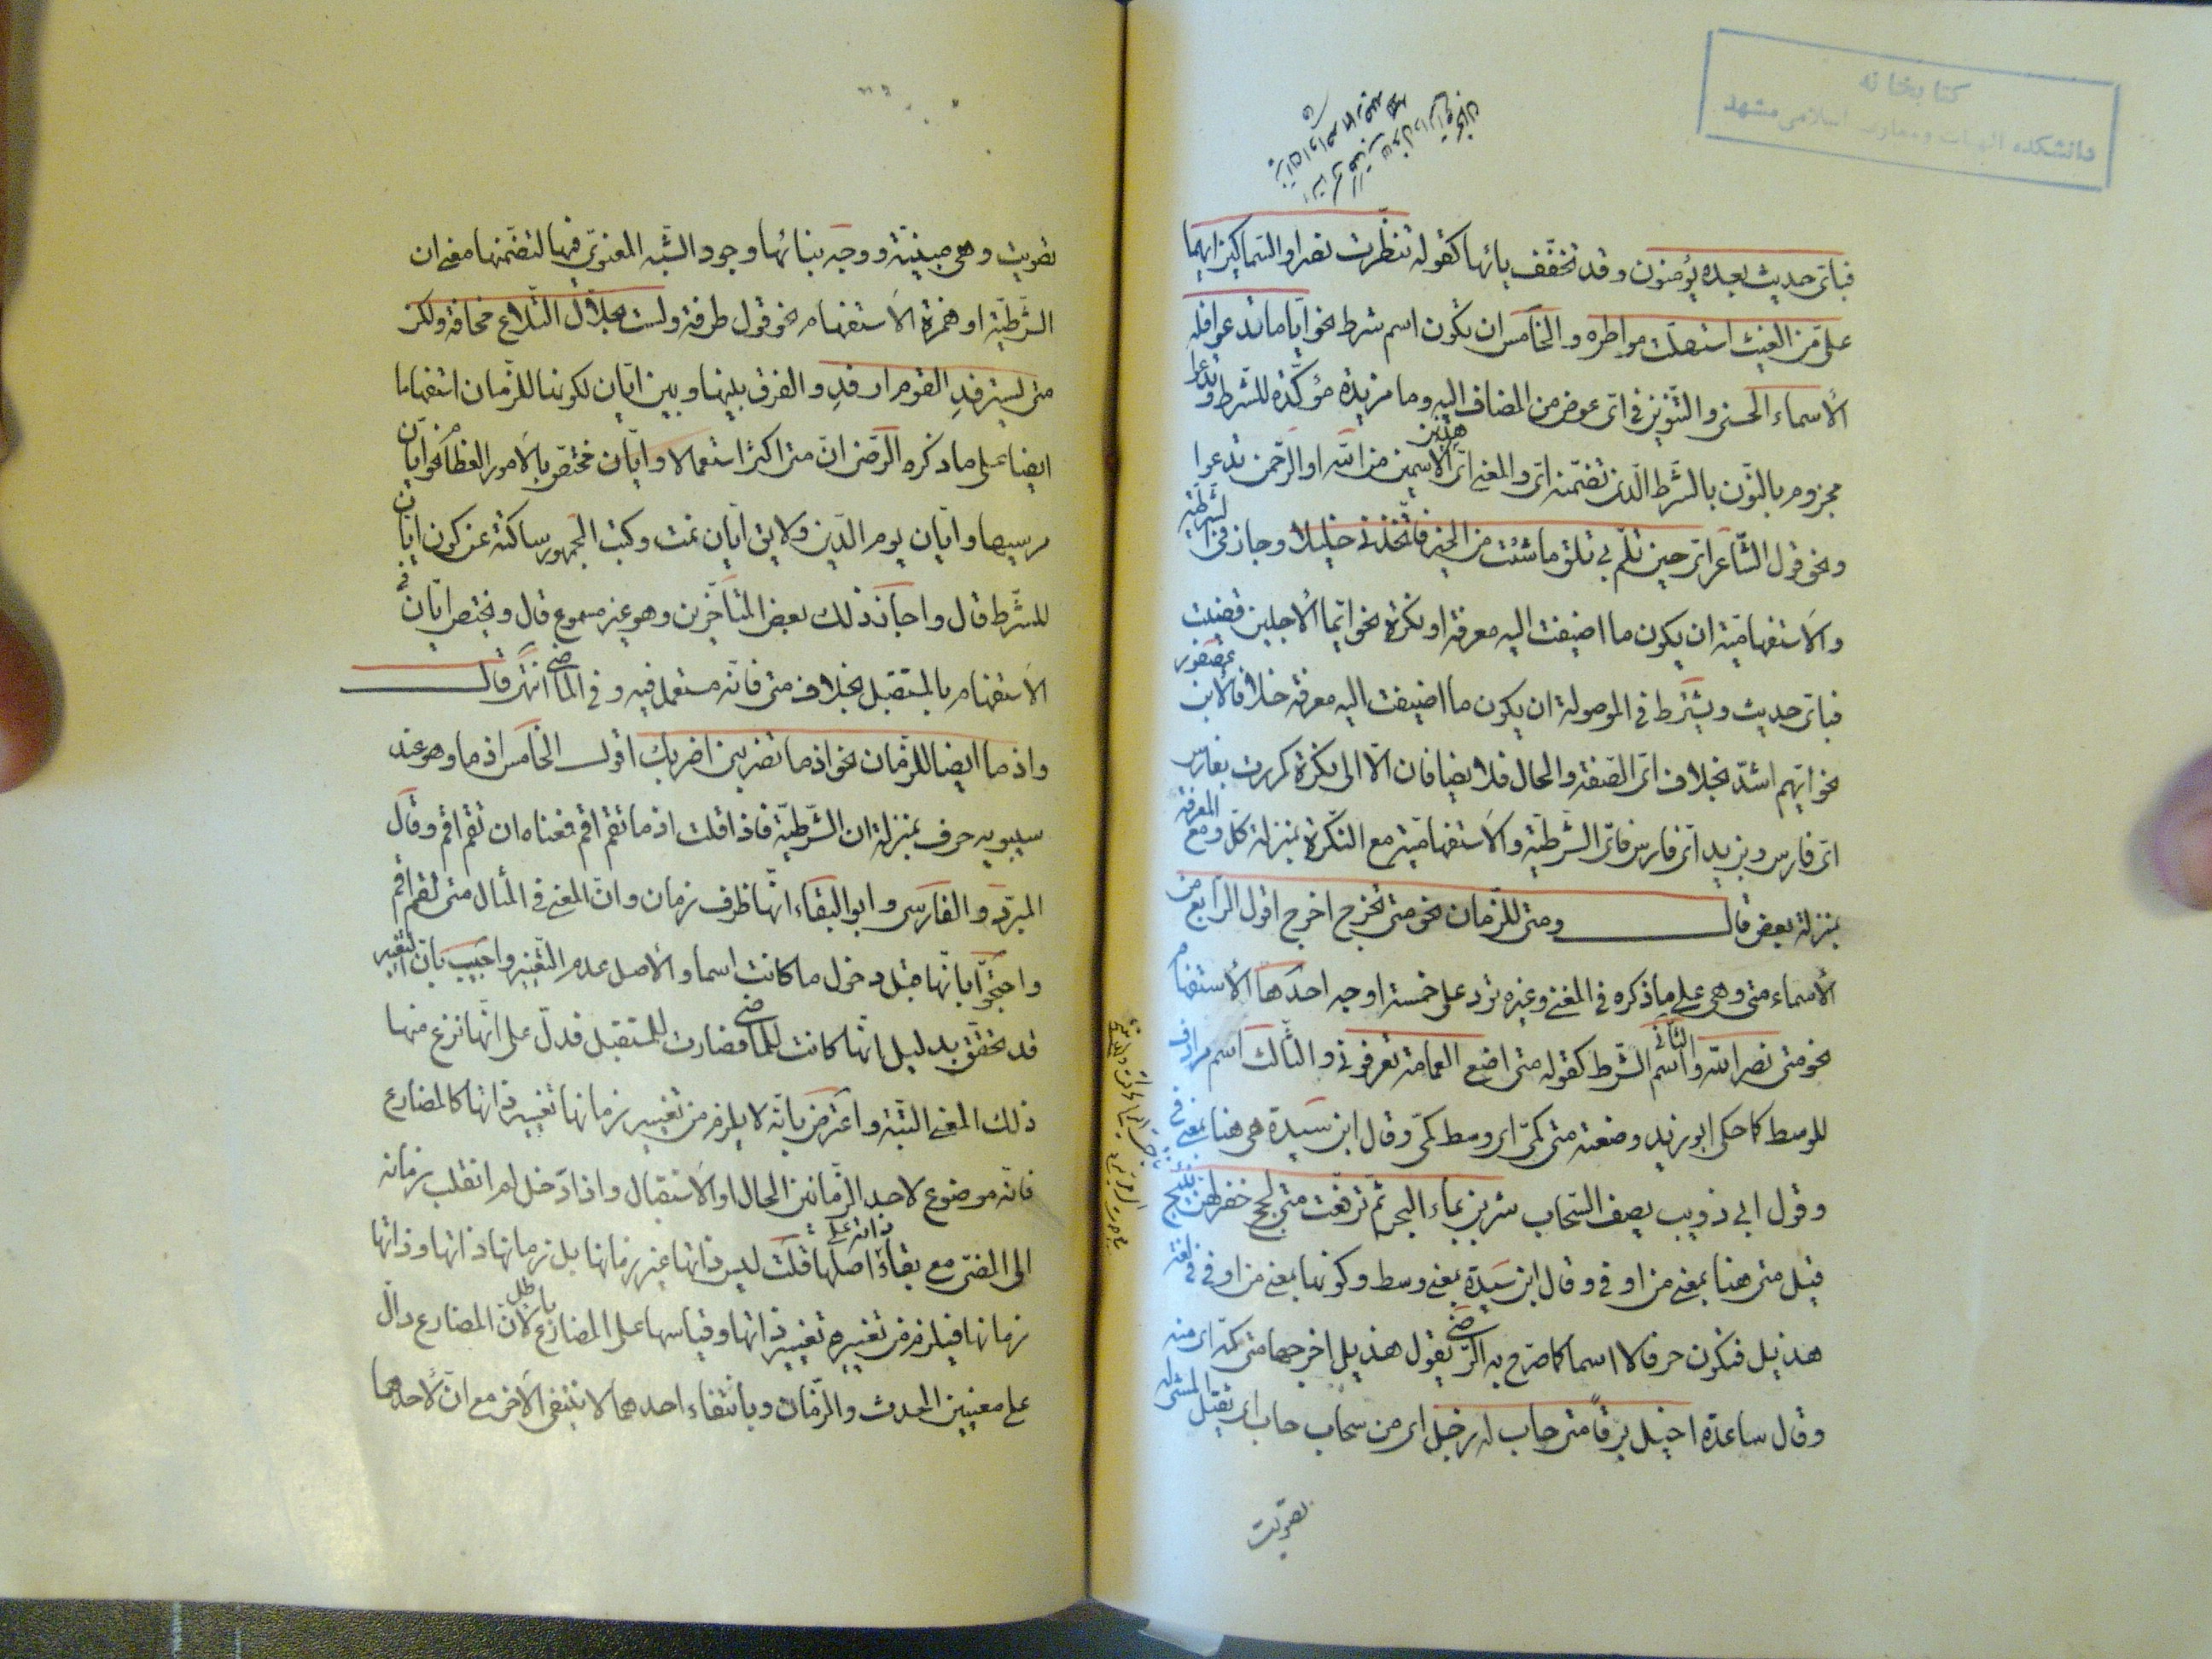 فبای حدیث بعده یؤمنون و قد تخفف یائها کقوله تنظرت نصرا والسماکین ایهما
علی من الغیث استهلت مواطره والخامس ان یکون اسم شرط نحو ایا ما تدعوا فله
الاسماء الحسنی والتنوین فی ای عوض من المضاف الیه وما مزیدة مؤکدة للشرط و تدعوا
مجزوم بالنون بالشرط الذی تضمنه ای والمعنی ای هذین الاسمین من الله او الرحمن تدعوا
ونحو قول الشاعر ای حین تلم بی تلق ما شئت من الخیر فاتخذنی خلیلا وجاز فی الشرطیة
والاستفهامیة ان یکون ما اضیفت الیه معرفة او نکرة نحو ایما الاجلین قضیت
فبای حدیث ویشترط فی الموصولة ان یکون ما اضیفت الیه معرفة خلافا لابن عصفور
نحو ایهم اشد بخلاف ای الصفة والحال فلا یضافان الا الی نکرة کمررت بفارس
ای فارس وبزید ای فارس فای الشرطیة والاستفهامیة مع النکرة بمنزلة کل ومع المعرفة
بمنزلة بعض قال ومتی للزمان نحو متی تخرج اخرج اقول الرابع من
الاسماء متی وهی علی ما ذکره فی المغنی وغیره ترد علی خمسة اوجه احدها الاستفهام
نحو متی نصر الله والثانی اسم الشرط کقوله متی اضع العمامة تعرفونی والثالث اسم مرادف
للوسط کما حکی ابو زید وضعته متی کمی ای وسط کمی وقال ابن سیدة هی هنا بمعنی فی
وقول ابی ذویب یصف السحاب شربن بماء البحر ثم ترفعت متی لجج خضر لهن نئیج
قیل متی هنا بمعنی من او فی وقال ابن سیدة بمعنی وسط وکونها بمعنی من او فی فی لغة
هذیل فتکون حرفا لا اسما کما صرح به الرضی یقول هذیل اخرجها متی کمه ای منه
وقال ساعدة اخیل برقا متی حاب له زجل ای من سحاب حاب ای ثقیل المشی له
تصویت
تصویت وهی مبنیة و وجه بنائها وجود الشبه المعنوی فیها لتضمنها معنی ان
الشرطیة او همزة الاستفهام نحو قول طرفة ولست بحلال التلاع مخافة ولکن
متی یسترفد القوم ارفد والفرق بینها وبین ایان لکونها للزمان استفهاما
ایضا علی ما ذکره الرضی ان متی اکثر استعمالا وایان مختص بالامور العظام نحو ایان
مرسیها وایان یوم الدین ولا یق ایان نمت وکتب الجمهور ساکتة عن کون ایان
للشرط قال واجاز ذلک بعض المتاخرین وهو غیر مسموع قال ویختص ایان فی
الاستفهام بالمستقبل بخلاف متی فانه مستعمل فیه وفی الماضی انتهی قال
واذ ما ایضا للزمان نحو اذ ما تضربنی اضربک اقول الخامس اذ ما وهو عند
سیبویه حرف بمنزلة ان الشرطیة فاذا قلت اذ ما تقم اقم فمعناه ان تقم اقم وقال
المبرد والفارسی وابو البقاء انها ظرف زمان وان المعنی فی المثال متی تقم اقم
واحتجوا بانها قبل دخول ما کانت اسما والاصل عدم التغییر واجیب بان التغییر
قد تحقق بدلیل انها کانت للماضی فصارت للمستقبل فدل علی انها نزع منها
ذلک المعنی البتة واعترض بانه لا یلزم من تغییر زمانها تغییر ذاتها کالمضارع
فانه موضوع لاحد الزمانین الحال او الاستقبال واذا دخل لم انقلب زمانه
الی المضی مع بقاء ذاته علی اصلها قلت لیس ذاتها غیر زمانها بل زمانها ذاتها وذاتها
زمانها فیلزم من تغییره تغییر ذاتها وقیاسها علی المضارع باطل لان المضارع دال
علی معنیین الحدث والزمان وبانتفاء احدهما لا ینتفی الآخر مع ان لاحدهما